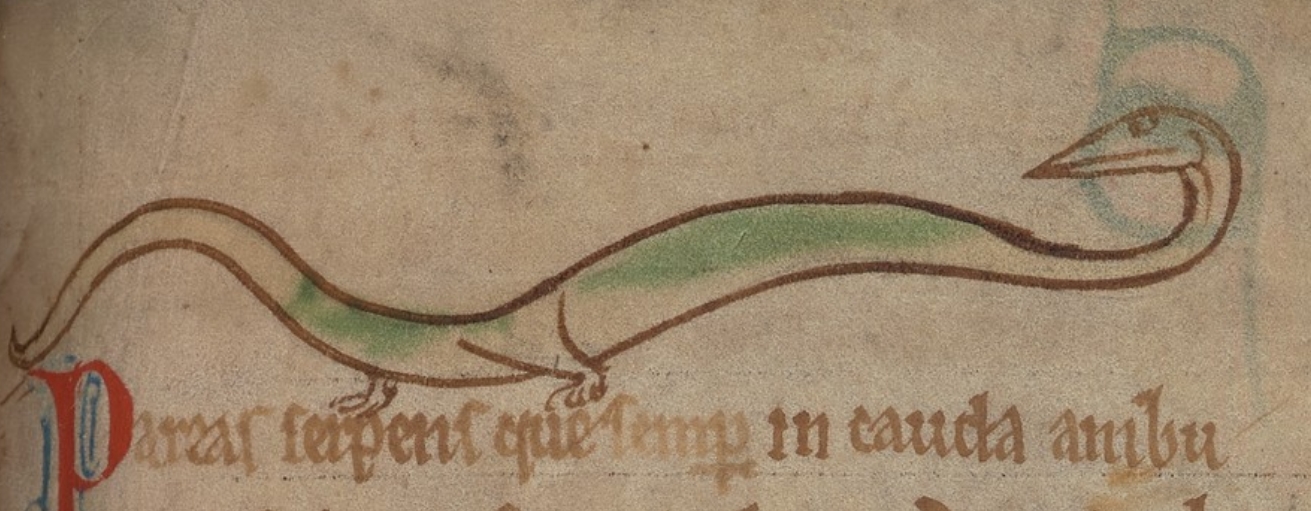 Parias serpens que semp in cauda ambu